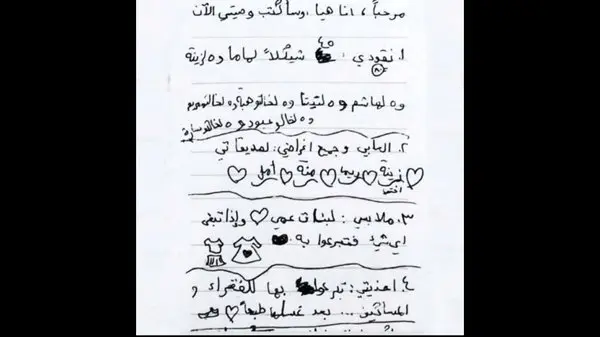 مرحباً، انا هيا، وسأكتب وصيتي الآن
1. نقودي: 45 شيكلاً لماما و5 لزينة
و5 لهاشم و5 لتيتا و5 لخالتو هبة و5 لخالتو مريم
و5 لخالو عبود و5 لخالتو سارة
2. ألعابي وجميع اغراضي: لصديقاتي
زينة ♡ ريما ♡ منة ♡ أمل ♡
اختي
3. ملابسي: لبنات عمي ♡ وإذا تبقى
اي شيء فتبرعوا به
4. احذيتي: تبرعوا بها للفقراء و
المساكين... بعد غسلها طبعاً ♡